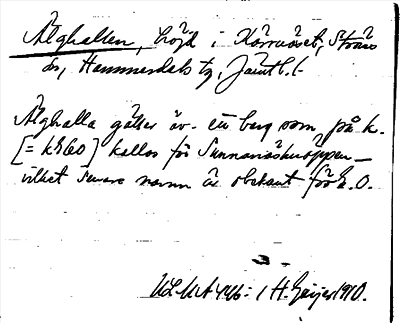 Älghallen, höjd i Körvnäset, Ströms
sn, Hammerdals tg, Jämtl. l.
Älghalla gäller äv. ett berg som på k.
[= k 960] kallas för Sunnanåskroppen –
vilket senare namn är obekant för E. O.
ULMA 446: 1 H. Geijer 1910.